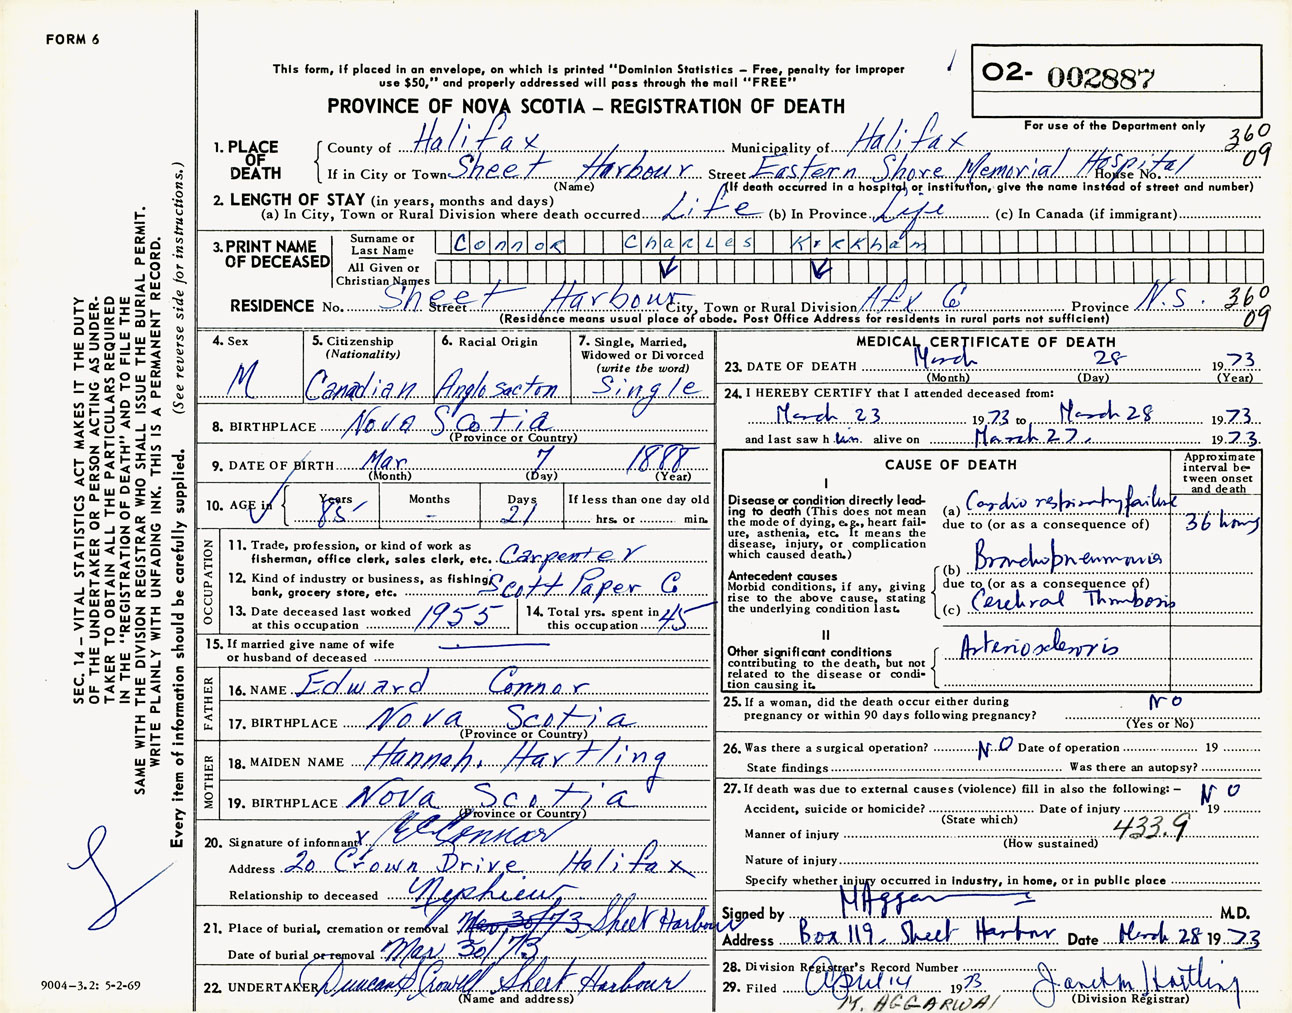 FORM 6
This form, if placed in an envelope, on which is printed "Dominion Statistics – Free, penalty for improper
use $50," and properly addressed will pass through the mail "FREE"
PROVINCE OF NOVA SCOTIA – REGISTRATION OF DEATH
O2- 002887
For use of the Department only
360
09
1. PLACE OF DEATH
County of Halifax Municipality of Halifax
If in City or Town Sheet Harbour Street Eastern Shore Memorial Hospital House No.
(Name) (If death occurred in a hospital or institution, give the name instead of street and number)
2. LENGTH OF STAY (in years, months and days)
(a) In City, Town or Rural Division where death occurred Life (b) In Province Life (c) In Canada (if immigrant)
3. PRINT NAME OF DECEASED
Surname or Last Name Connor Charles Kirkham
All Given or Christian Names
RESIDENCE No. Sheet Harbour Street City, Town or Rural Division Hfx Co Province N.S. 360
09
(Residence means usual place of abode. Post Office Address for residents in rural parts not sufficient)
4. Sex
M
5. Citizenship
(Nationality)
Canadian
6. Racial Origin
Anglo sacton
7. Single, Married,
Widowed or Divorced
(write the word)
Single
8. BIRTHPLACE Nova Scotia
(Province or Country)
9. DATE OF BIRTH Mar 7 1888
(Month) (Day) (Year)
10. AGE in
Years Months Days If less than one day old
85 – 21 hrs. or min.
OCCUPATION
11. Trade, profession, or kind of work as
fisherman, office clerk, sales clerk, etc. Carpenter
12. Kind of industry or business, as fishing,
bank, grocery store, etc. Scott Paper Co
13. Date deceased last worked
at this occupation 1955
14. Total yrs. spent in
this occupation 45
15. If married give name of wife
or husband of deceased
FATHER
16. NAME Edward Connor
17. BIRTHPLACE Nova Scotia
(Province or Country)
MOTHER
18. MAIDEN NAME Hannah. Hartling
19. BIRTHPLACE Nova Scotia
(Province or Country)
20. Signature of informant x Connor
Address 20 Crown Drive Halifax
Relationship to deceased Nephieu
21. Place of burial, cremation or removal Mar 30/73 Sheet Harbour
Date of burial or removal Mar. 30/73
22. UNDERTAKER Duncan S Crowell Sheet Harbour
(Name and address)
MEDICAL CERTIFICATE OF DEATH
23. DATE OF DEATH March 28 1973
(Month) (Day) (Year)
24. I HEREBY CERTIFY that I attended deceased from:
March 23 1973 to March 28 1973
and last saw h im alive on March 27. 1973.
CAUSE OF DEATH
Approximate
interval be-
tween onset
and death
I
Disease or condition directly lead-
ing to death (This does not mean
the mode of dying, e.g., heart fail-
ure, asthenia, etc. It means the
disease, injury, or complication
which caused death.)
(a) Cardio respiratory failure
due to (or as a consequence of)
36 hours
(b) Bronchopneumonia
Antecedent causes
Morbid conditions, if any, giving
rise to the above cause, stating
the underlying condition last.
due to (or as a consequence of)
(c) Cerebral Thrombosis
II
Other significant conditions
contributing to the death, but not
related to the disease or condi-
tion causing it.
Arteriosclerosis
25. If a woman, did the death occur either during
pregnancy or within 90 days following pregnancy? NO
(Yes or No)
26. Was there a surgical operation? NO Date of operation 19
State findings Was there an autopsy?
27. If death was due to external causes (violence) fill in also the following: – NO
Accident, suicide or homicide? Date of injury 19
(State which)
Manner of injury 433.9
(How sustained)
Nature of injury
Specify whether injury occurred in industry, in home, or in public place
Signed by M Aggarwal M.D.
Address Box 119, Sheet Harbour Date March 28 1973
28. Division Registrar's Record Number
29. Filed April 14 1973 Janet M Hartling
(Division Registrar)
M. AGGARWAL
SEC. 14 – VITAL STATISTICS ACT MAKES IT THE DUTY
OF THE UNDERTAKER OR PERSON ACTING AS UNDER-
TAKER TO OBTAIN ALL THE PARTICULARS REQUIRED
IN THE "REGISTRATION OF DEATH" AND TO FILE THE
SAME WITH THE DIVISION REGISTRAR WHO SHALL ISSUE THE BURIAL PERMIT.
WRITE PLAINLY WITH UNFADING INK. THIS IS A PERMANENT RECORD.
Every item of information should be carefully supplied. (See reverse side for instructions.)
9004-3.2: 5-2-69